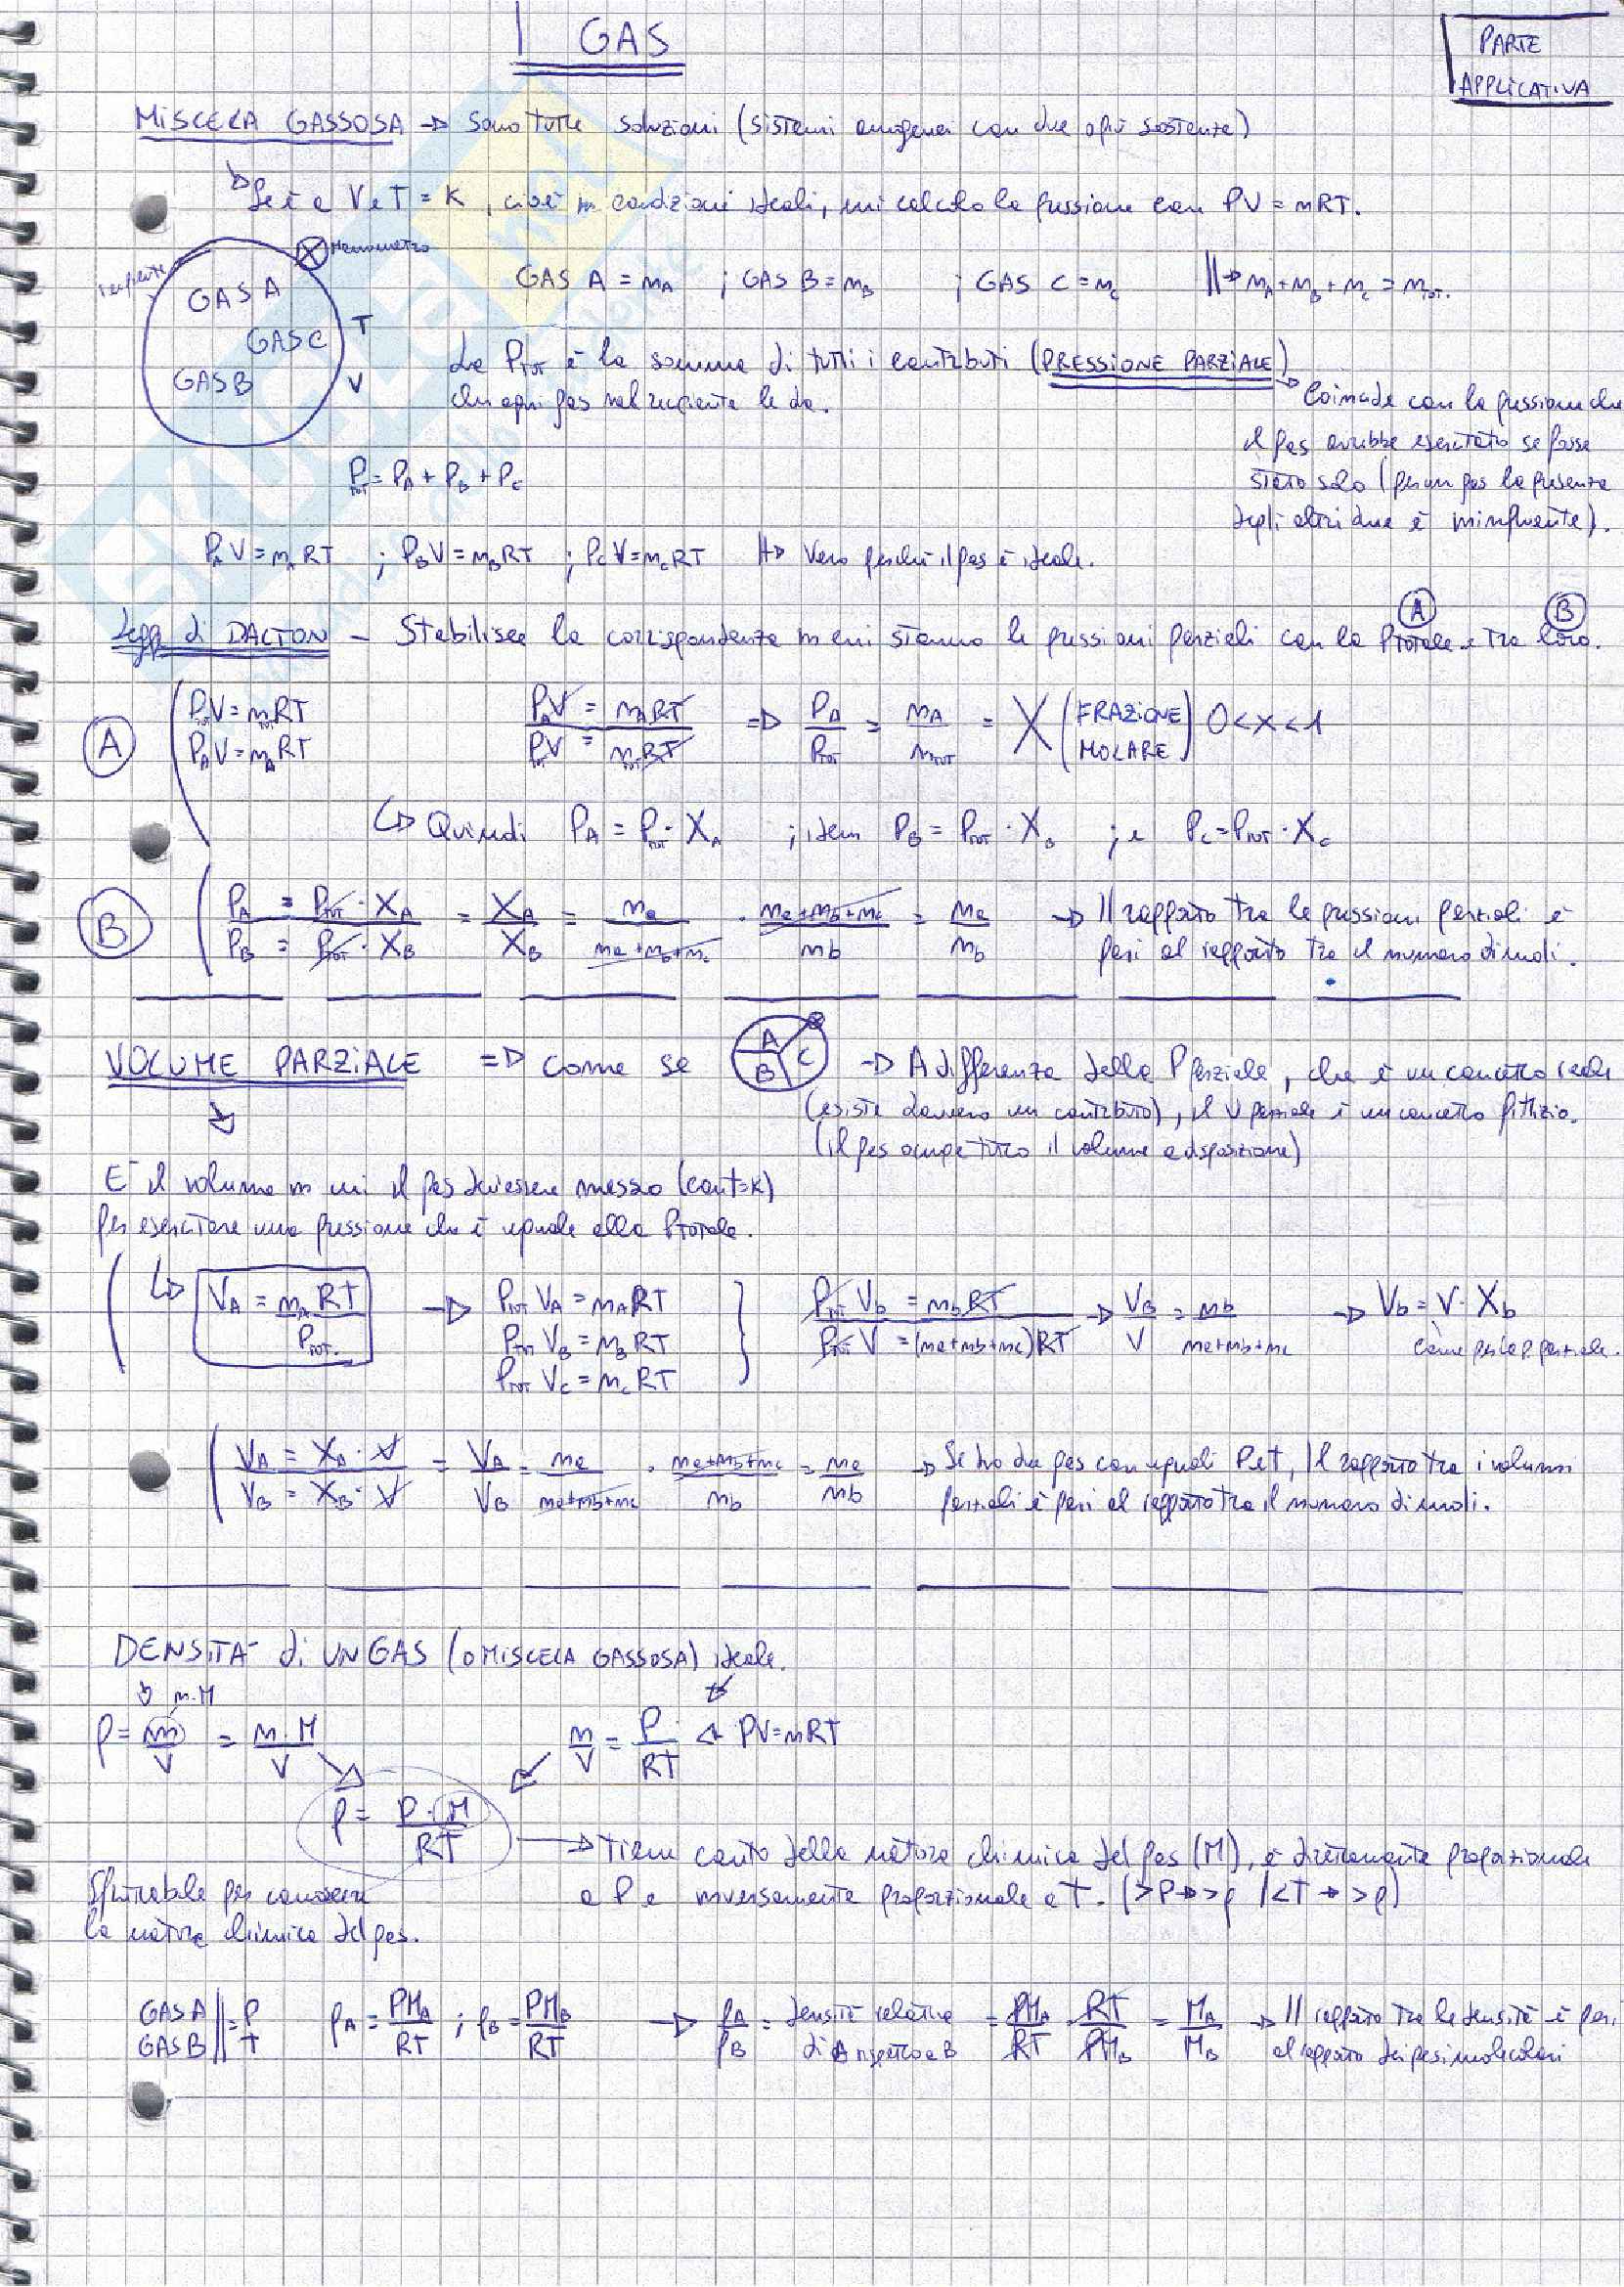 I GAS
PARTE
APPLICATIVA
MISCELA GASSOSA → sono tutte soluzioni (sistemi omogenei con due o più sostanze)
Se è a V e T = K, cioè in condizioni ideali, mi calcolo la pressione con PV = nRT.
Manometro
recipiente
GAS A
GAS C
GAS B
T
V
GAS A = nA ; GAS B = nB ; GAS C = nC ||→ nA + nB + nC = nTOT.
La PTOT è la somma di tutti i contributi (PRESSIONE PARZIALE)
che ogni gas nel recipiente le da.
Coincide con la pressione che
il gas avrebbe esercitato se fosse
stato solo (per un gas la presenza
degli altri due è ininfluente).
PTOT = PA + PB + PC
PAV = nART ; PBV = nBRT ; PCV = nCRT → Vero perché il gas è ideale.
Legg. di DALTON - Stabilisce la corrispondenza in cui stanno le pressioni parziali con la Ptotale e tra loro.
A B
A
PTOTV = nTOTRT
PAV = nART
PAV = nART / PTOTV = nTOTRT ⇒ PA/PTOT = nA/nTOT = X (FRAZIONE MOLARE) 0 < X < 1
↳ Quindi PA = PTOT · XA ; idem PB = PTOT · XB ; e PC = PTOT · XC
B
PA/PB = PTOT · XA / PTOT · XB = XA/XB = na/(na+nb+nc) · (na+nb+nc)/nb = na/nb → Il rapporto tra le pressioni parziali è
pari al rapporto tra il numero di moli.
VOLUME PARZIALE ⇒ come se A B C → A differenza della Pparziale, che è un concetto reale
(esiste davvero un contributo), il V parziale è un concetto fittizio.
(il gas occupa tutto il volume a disposizione)
È il volume in cui il gas dev'essere messo (con t=K)
per esercitare una pressione che è uguale alla Ptotale.
↳ VA = nA RT / PTOT. → PTOT VA = nART
PTOT VB = nBRT
PTOT VC = nCRT
PTOT Vb = nbRT / PTOT V = (na+nb+nc)RT → VB/V = nb/(na+nb+nc) → Vb = V · Xb
come per la p. parziale.
VA/VB = XA · V / XB · V = VA/VB = na/(na+nb+nc) · (na+nb+nc)/nb = na/nb → Se ho due gas con uguali P e t, il rapporto tra i volumi
parziali è pari al rapporto tra il numero di moli.
DENSITA' di UN GAS (O MISCELA GASSOSA) ideale.
n·M
ρ = m/V = n·M/V
n/V = P/RT ← PV = nRT
ρ = P·M/RT
→ Tiene conto della natura chimica del gas (M), è direttamente proporzionale
a P e inversamente proporzionale a T. (>P → >ρ / <T → >ρ)
Sfruttabile per conoscere
la natura chimica del gas.
GAS A
GAS B || = P T ρA = PMA/RT ; ρB = PMB/RT → ρA/ρB = densità relativa di A rispetto a B = PMA/RT · RT/PMB = MA/MB → Il rapporto tra le densità è pari
al rapporto dei pesi molecolari